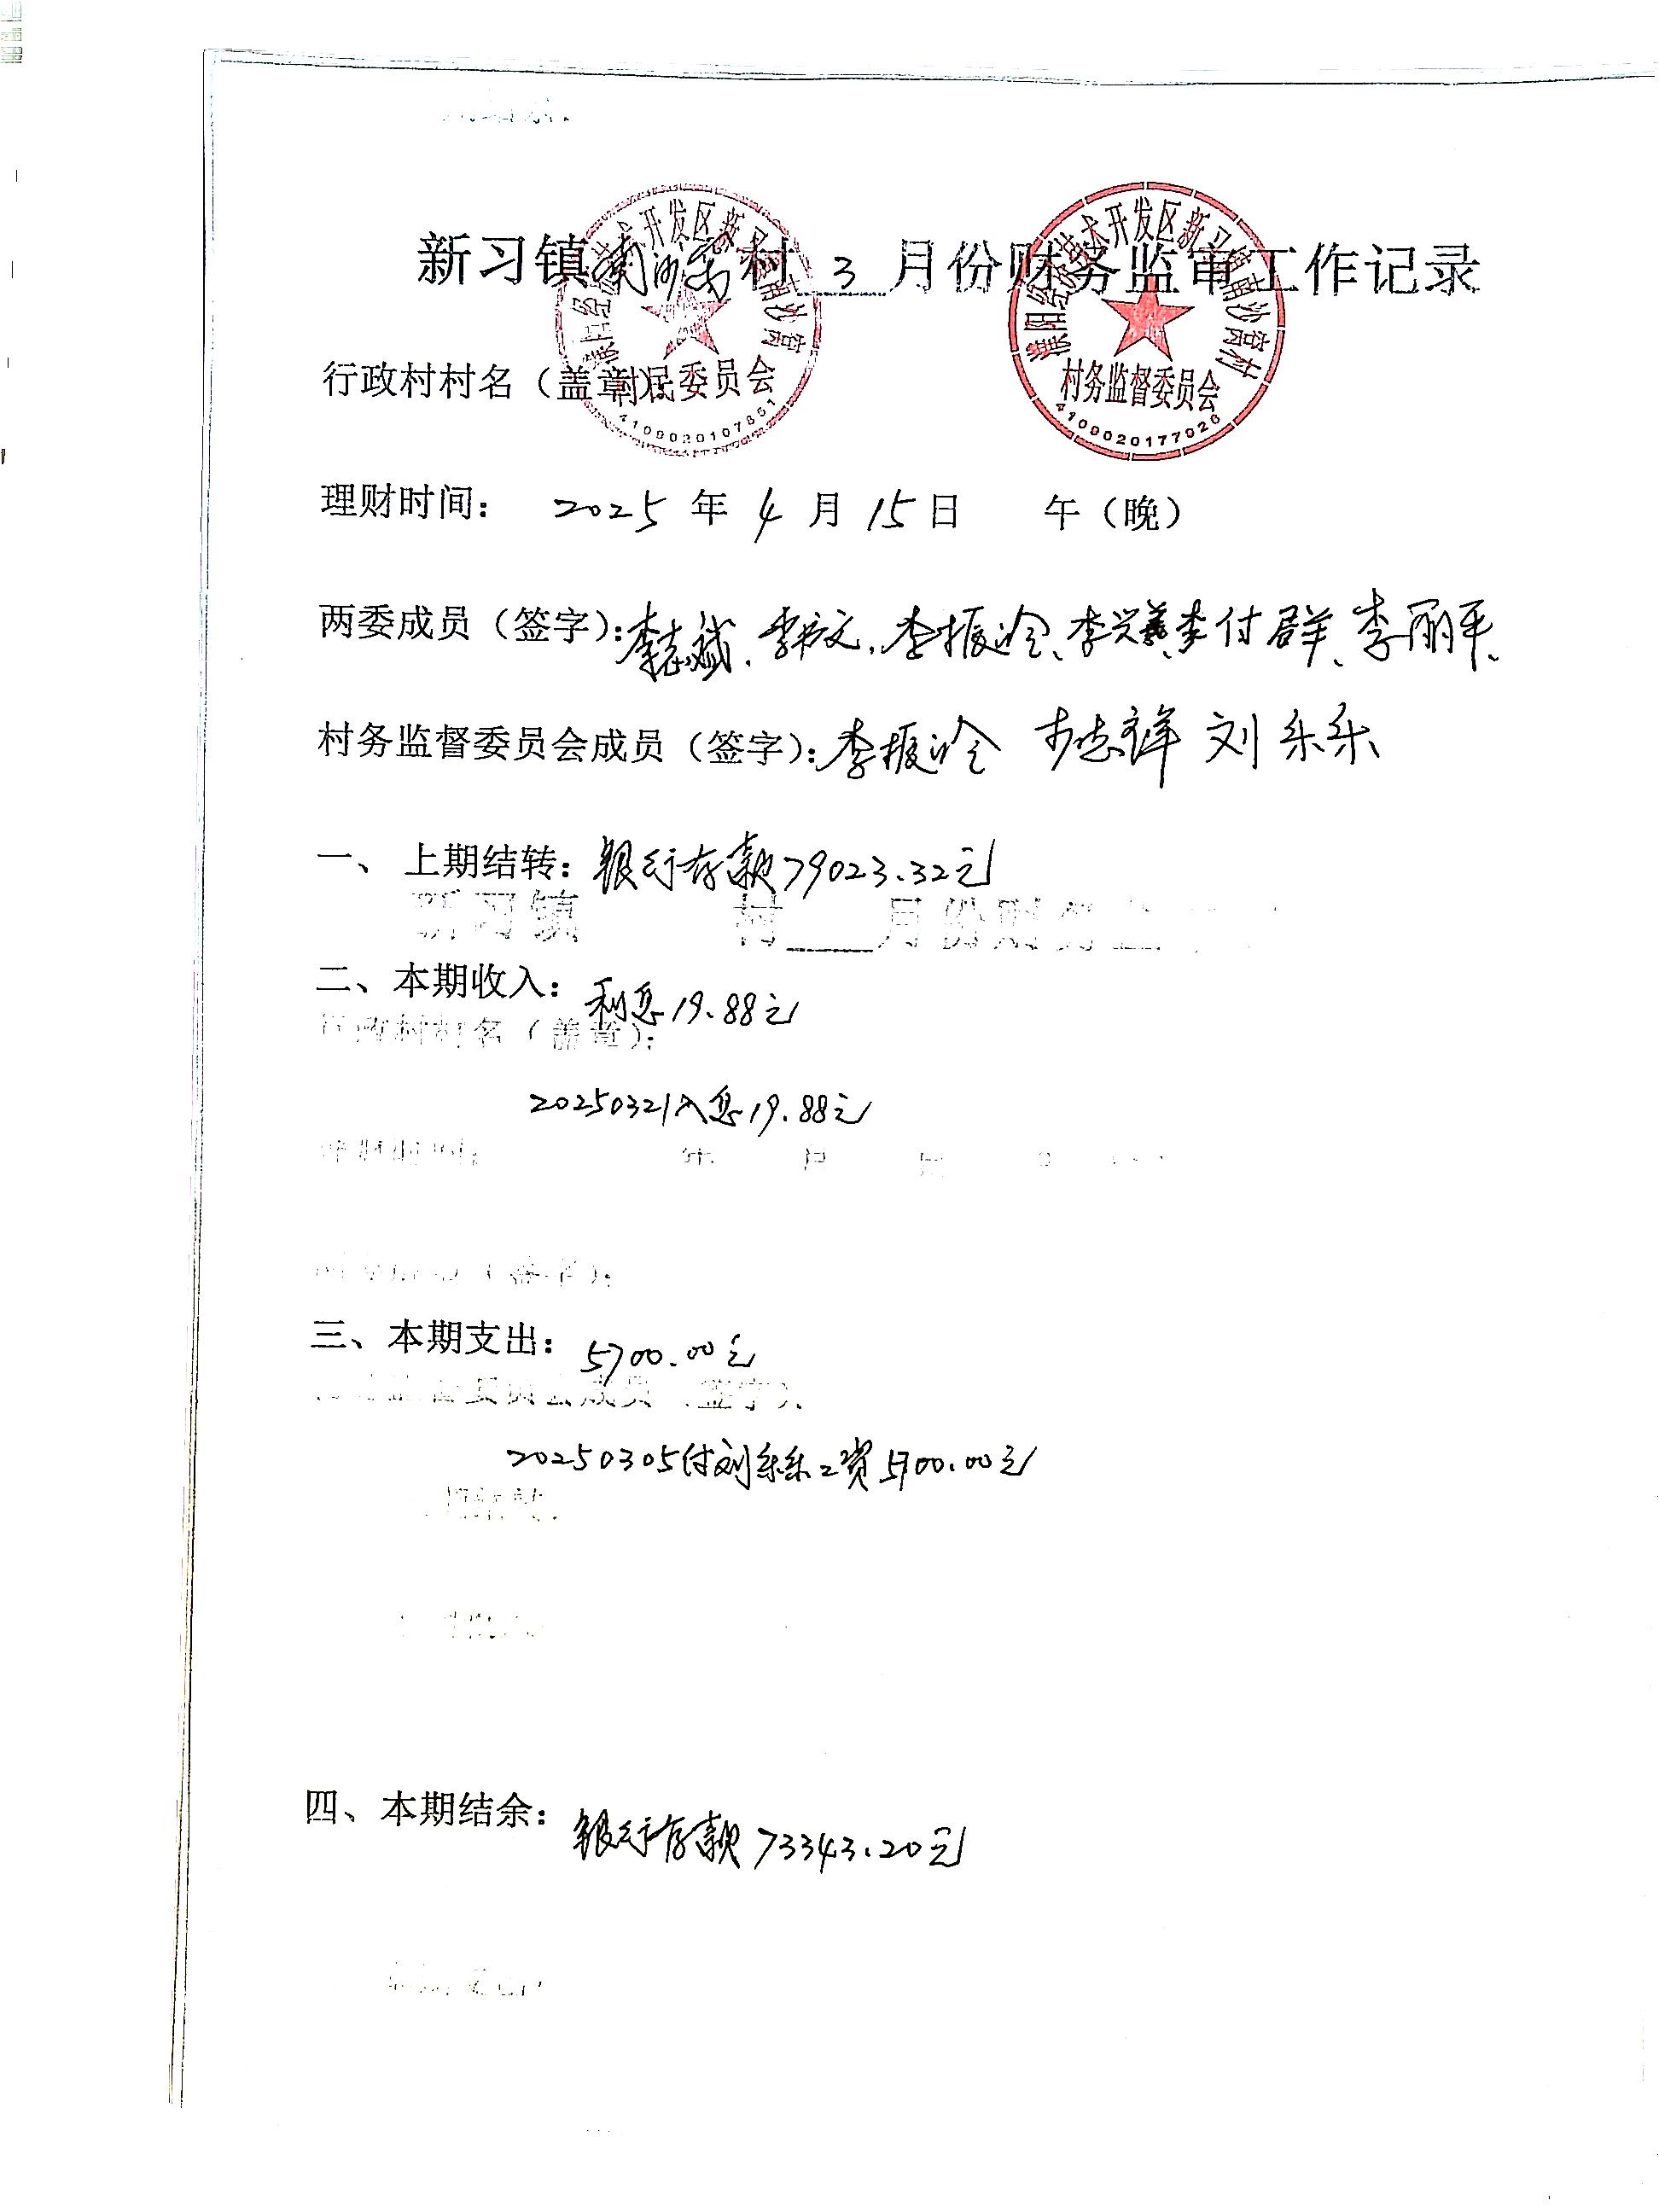 新习镇南沙窝村 3 月份财务监审工作记录
行政村村名（盖章）：
濮阳经济技术开发区新习镇南沙窝
村民委员会
4109020107851
濮阳经济技术开发区新习镇南沙窝村
村务监督委员会
4109020177926
理财时间： 2025 年 4 月 15 日 午（晚）
两委成员（签字）：李志斌、李书文、李振冷、李兴義、李付群、李丽平、
村务监督委员会成员（签字）：李振冷 李志祥 刘乐乐
一、 上期结转：银行存款79023.32元
二、本期收入：利息19.88元
20250321入息19.88元
三、本期支出：5700.00元
20250305付刘乐乐工资5700.00元
四、本期结余：银行存款73343.20元